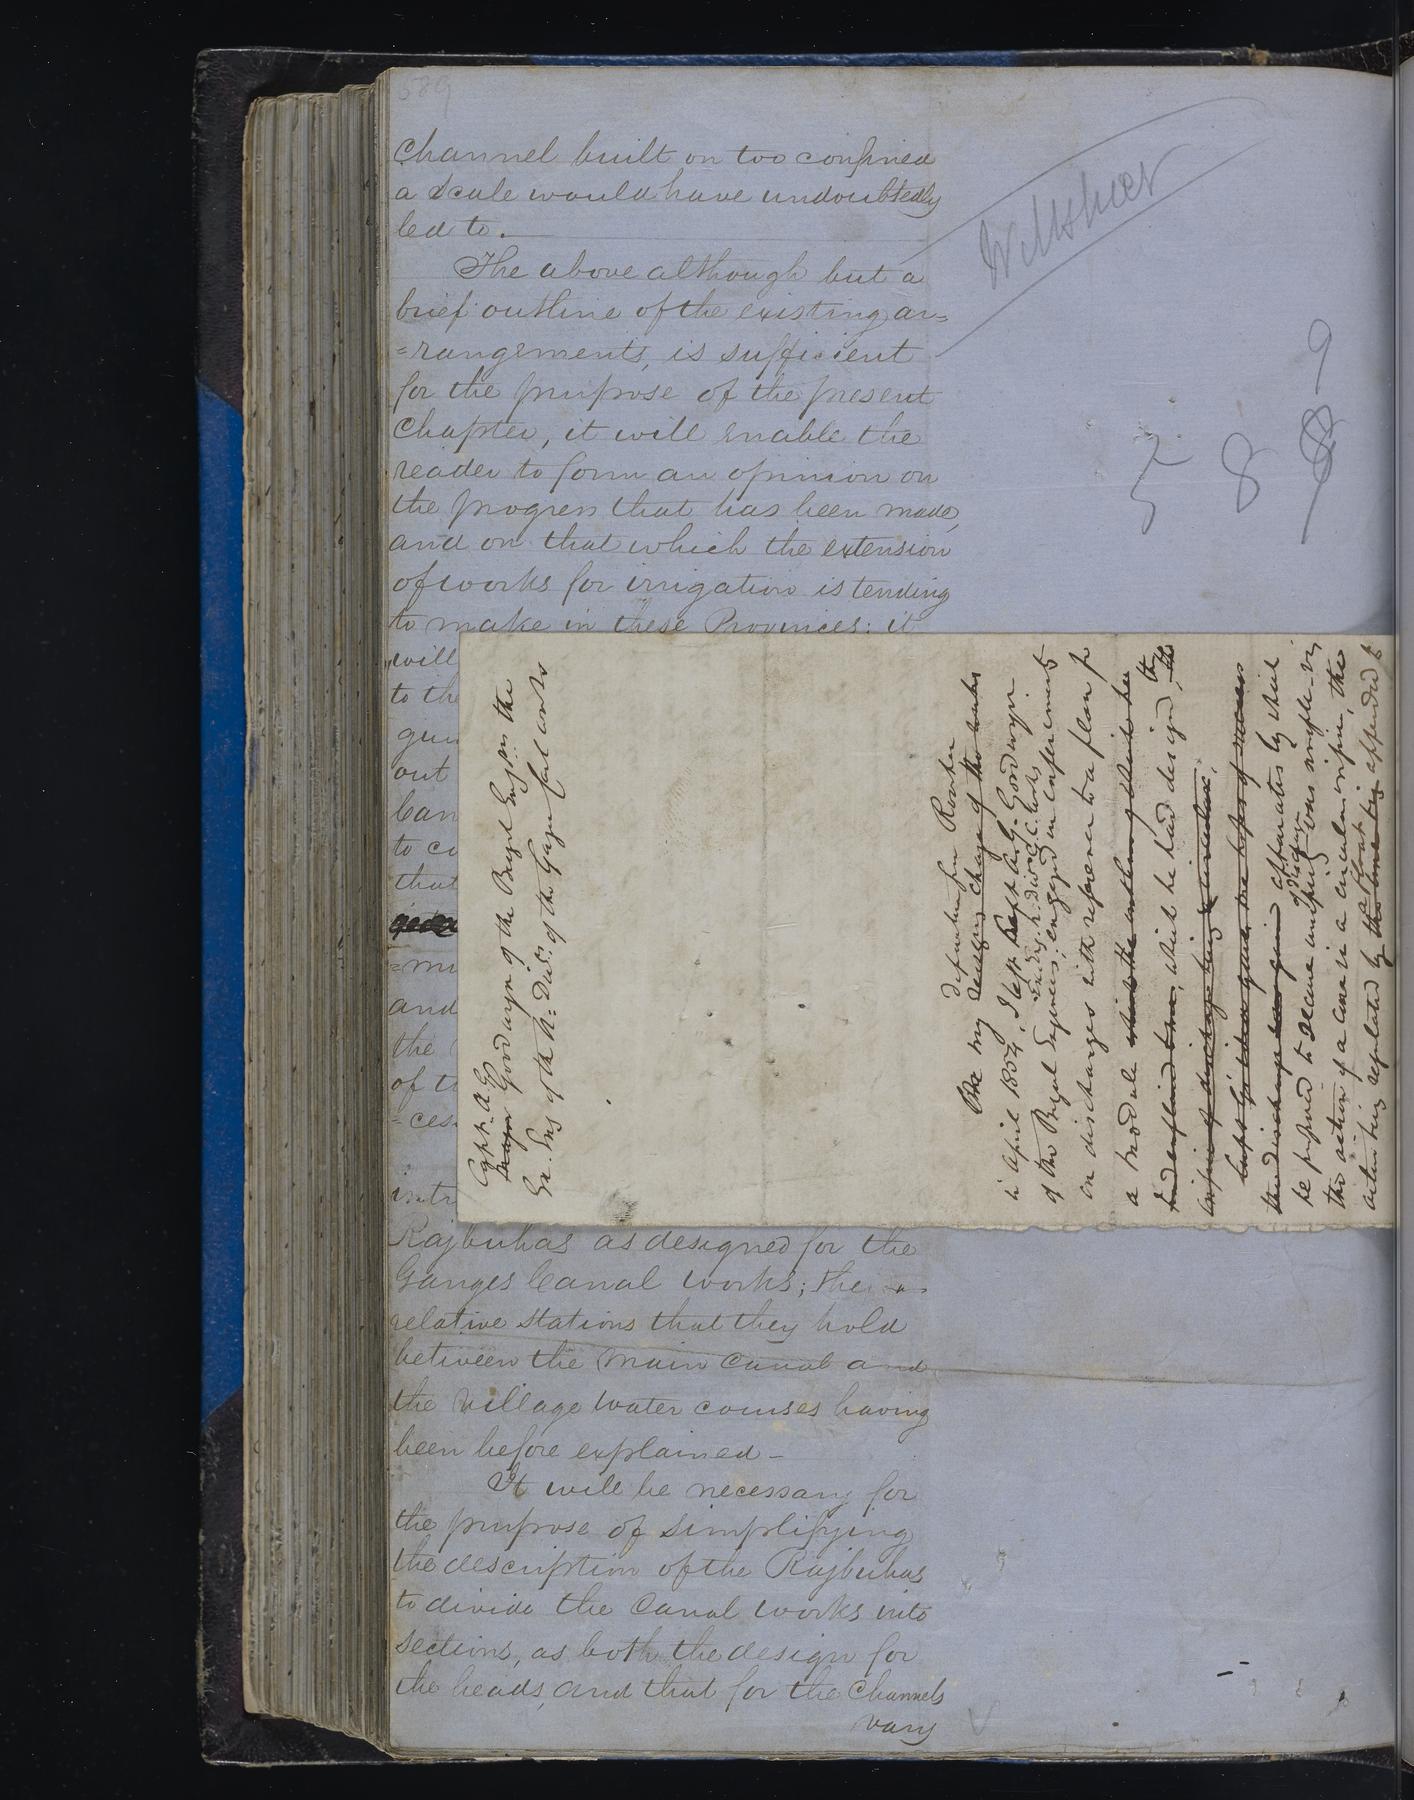 589
Channel built on too confined
a Scale would have undoubtedly
led to.
The above although but a
brief outline of the existing ar=
=rangements, is sufficient
for the purpose of the present
Chapter, it will enable the
reader to form an opinion on
the progress that has been made,
and on that which the extension
of works for irrigation is tending
to make in these Provinces: it
will
to the
gun
out
Can
to co
that
=mi
and
the
of t
=ces
intr
Rajbuhas as designed for the
Ganges Canal works; the
relative stations that they hold
between the Main Canal and
the Village Water courses having
been before explained -
It will be necessary for
the purpose of simplifying
the description of the Rajbuhas
to divide the Canal works into
sections, as both the design for
the heads, and that for the Channels
vary
5 8 9
Capt. A. G.
Goodwyn of the Bengal Eng.rs on the
Ex. Eng of the N. Div. of the Ganges Canal works
departure from Roorkee
my charge of the works
in April 1854, I left Capt. A. G. Goodwyn
Ex. Eng. N. Div. G. C. Works
of the Bengal Engineers, engaged in experiments
on discharges with reference to a plan for
a module which he had designed, the
apparatus by which
of discharge
be proposed to secure uniformity was simple viz
the action of a cone in a circular orifice, the
a float
action being regulated by appended to